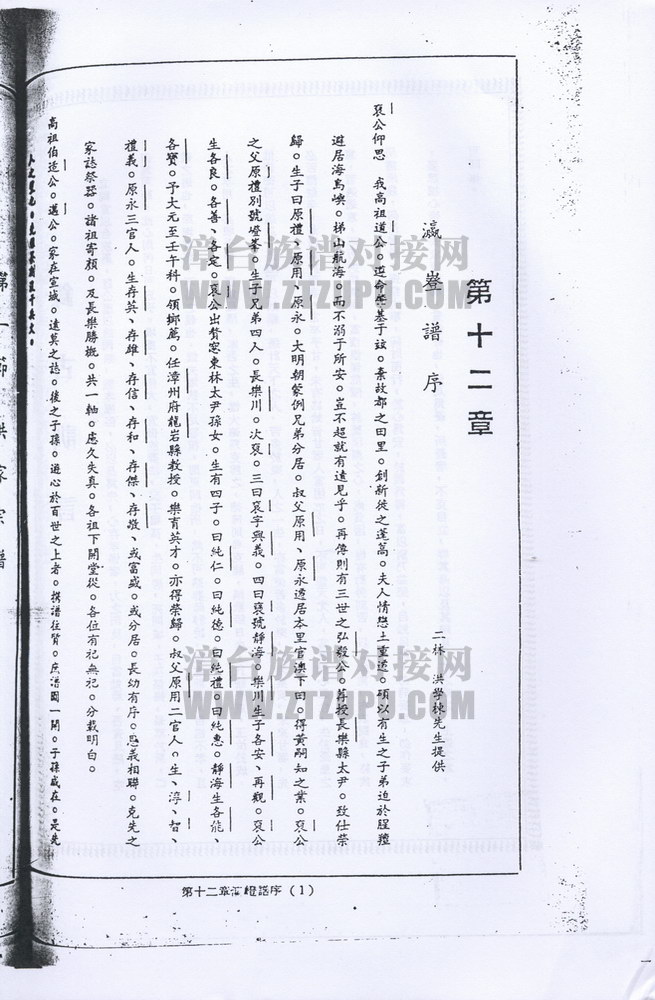 第十二章
瀛嶝譜序
二林 洪學棟先生提供
裒公仰思 我高祖道公。逆命肇基于玆。棄故都之田里。創新徙之蓬蒿。夫人情戀土重遷。碩以有生之子弟迫於腥羶
避居海島嶼。梯山航海。而不溺于所安。豈不超就有遠見乎。再傳則有三世之弘毅公。荐授長樂縣太尹。致仕榮
歸。生子曰原禮、原用、原永。大明朝蒙例兄弟分居。叔父原用、原永透居本里官澳下田。得黃嗣知之業。裒公
之父原禮別號嶝峯。生子兄弟四人。長樂川。次裒。三曰袞字興義。四曰襃號靜海。樂川生子各安、再觀。裒公
生各良。各善、各定。袞公出贅窓東林太尹孫女。生有四子。曰純仁。曰純德。曰純禮。曰純惠。靜海生各能、
各賢。予大元至壬午科。領鄉薦。任漳州府龍岩縣教授。樂育英才。亦得榮歸。叔父原用二官人。生、淳、智、
禮義。原永三官人。生存英、存雄、存信、存和、存傑、存墩、或富盛。或分居。長幼有序。恩義相聯。克先之
家誌祭器。諸祖寄顏。及長樂勝概。共一軸。慮久失真。各祖下開堂從。各位有祀無祀。分載明白。
高祖伯造公。邁公。家在宣城。遠莫之誌。後之子孫。遊心於百世之上者。撰譜往質。庶譜圖一開。子孫咸在。是先
第一節 洪家宗譜
第十二章瀛嶝譜序（1）
漳台族谱对接网
WWW.ZTZUPU.COM
漳台族谱对接网
WWW.ZTZUPU.COM